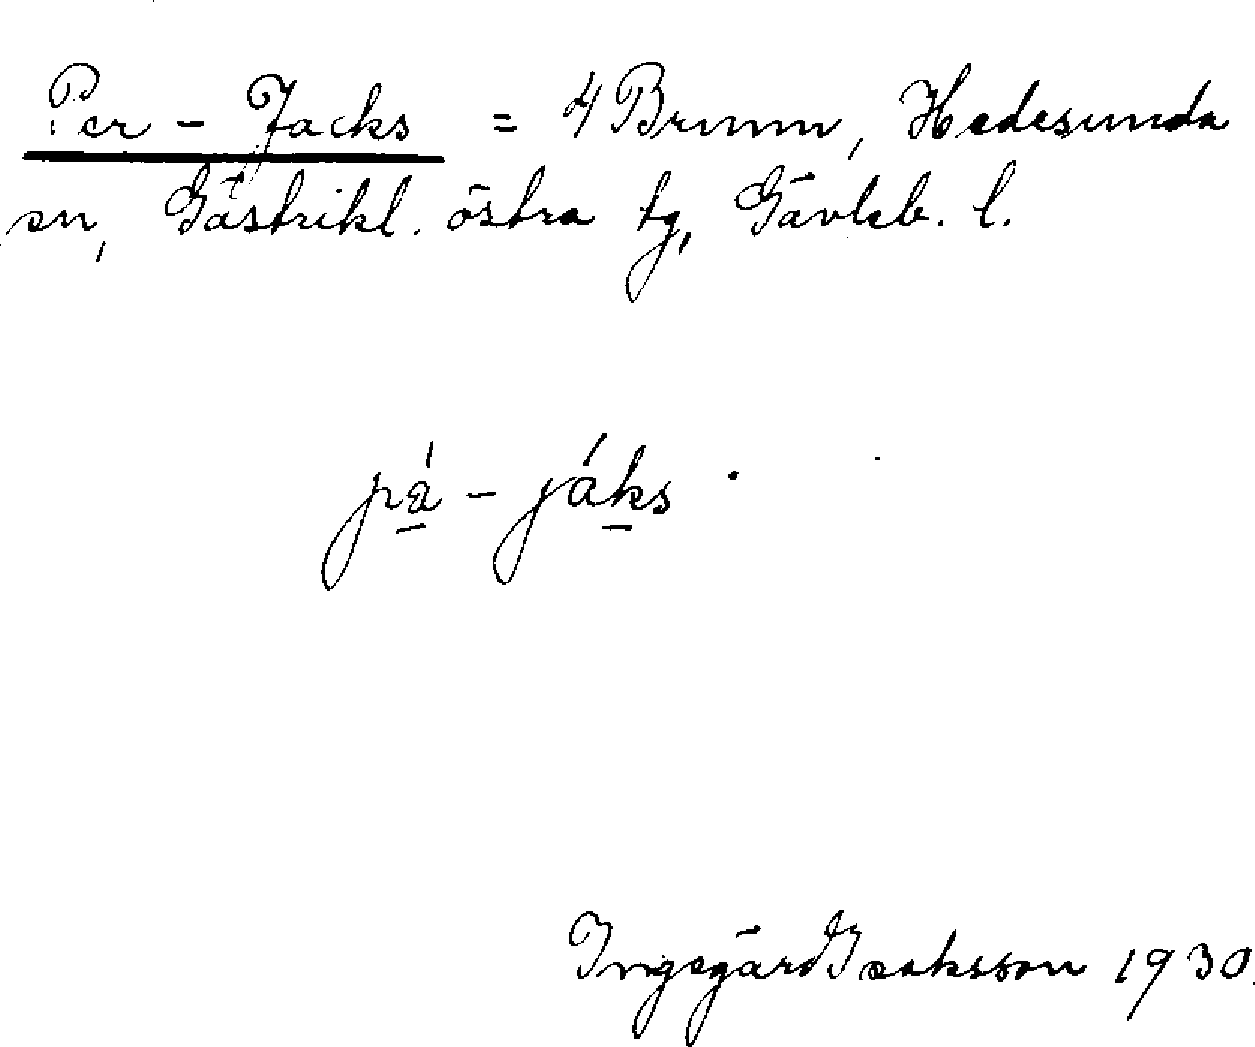 Per - Jacks = 4 Brunn, Hedesunda
sn, Gästrikl. östra tg, Gävleb. l.
pä́ - jáks
Ingegärd Isaksson 1930.